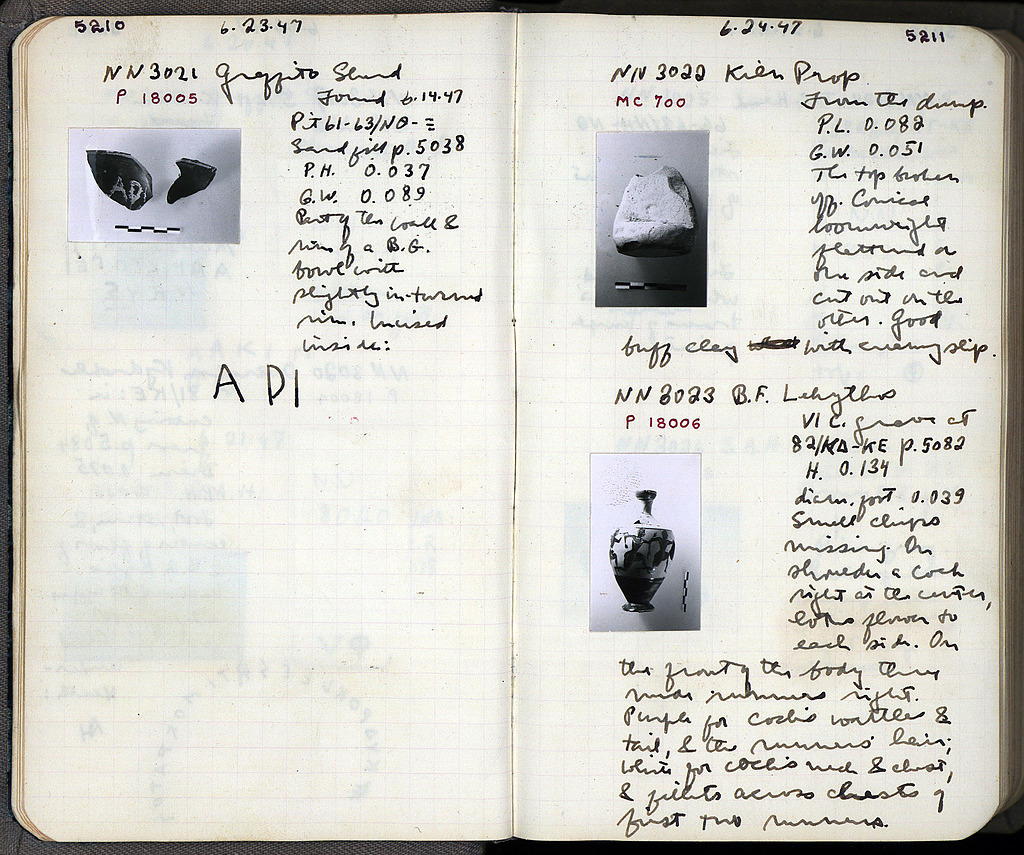 5210
6.23.47
NN 3021 Graffito Sherd
P 18005
Found 6.14.47
Pit 61-63/NΘ-Ξ
Sand fill p. 5038
P.H. 0.037
G.W. 0.089
Part of the wall &
rim of a B.G.
bowl with
slightly in-turned
rim. Incised
inside:
A DI
6.24.47
5211
NN 3022 Kiln Prop
MC 700
From the dump.
P.L. 0.082
G.W. 0.051
The top broken
off. Conical
loomweight
flattened on
one side and
cut out on the
other. Good
buff clay with creamy slip.
NN 3023 B.F. Lekythos
P 18006
VI c. grave at
82/ΚΔ-ΚΕ p. 5082
H. 0.134
diam. foot 0.039
Small chips
missing. On
shoulder a cock
right at the center,
lotus flower to
each side. On
the front of the body three
nude runners right.
Purple for cock's wattles &
tail, & the runners' hair;
White for cock's neck & chest,
& fillets across chests of
first two runners.